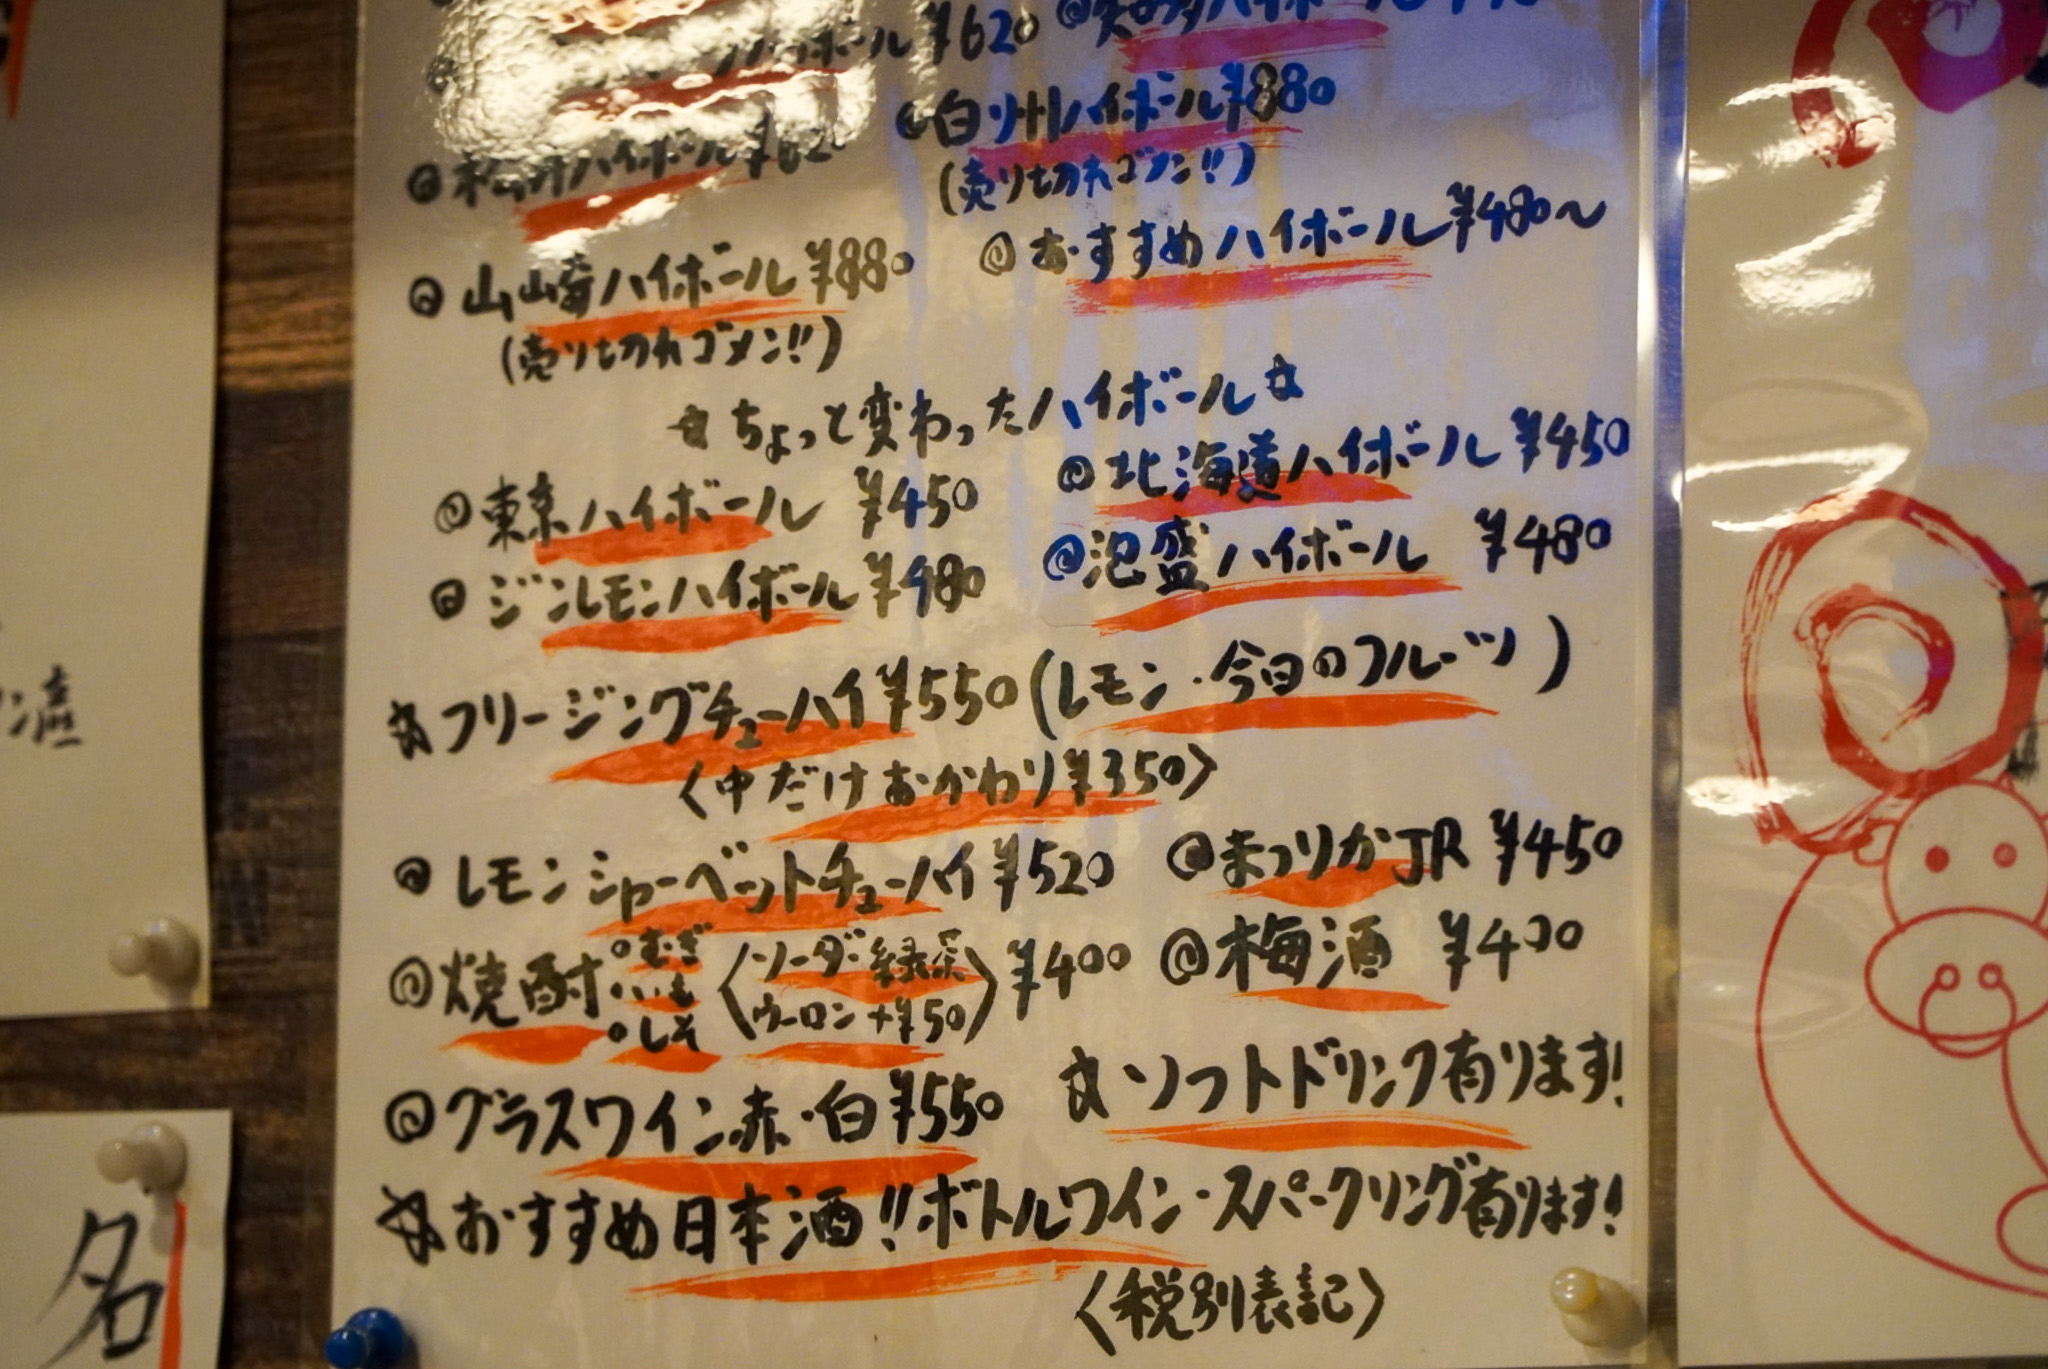 ハイボール ¥620
白州ハイボール ¥880
(売り切れゴメン!!)
ハイボール
おすすめハイボール ¥480〜
山崎ハイボール ¥880
(売り切れゴメン!!)
☆ちょっと変わったハイボール☆
東京ハイボール ¥450
北海道ハイボール ¥450
ジンレモンハイボール ¥480
泡盛ハイボール ¥480
☆フリージングチューハイ ¥550(レモン・今日のフルーツ)
〈中だけおかわり ¥350〉
レモンシャーベットチューハイ ¥520
まつりかJR ¥450
焼酎 ・むぎ ・いも ・しそ 〈ソーダ 緑茶 ウーロン +¥50〉 ¥400
梅酒 ¥400
グラスワイン 赤・白 ¥550
☆ソフトドリンク有ります!
☆おすすめ日本酒!!ボトルワイン・スパークリング有ります!
〈税別表記〉
名